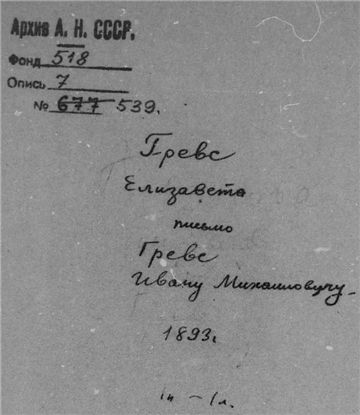 Архив А. Н. СССР.
Фонд 518
Опись 7
№ 677 539.
Гревс
Елизавета
письмо
Гревс
Ивану Михайловичу
1893г.
1п – 1л.